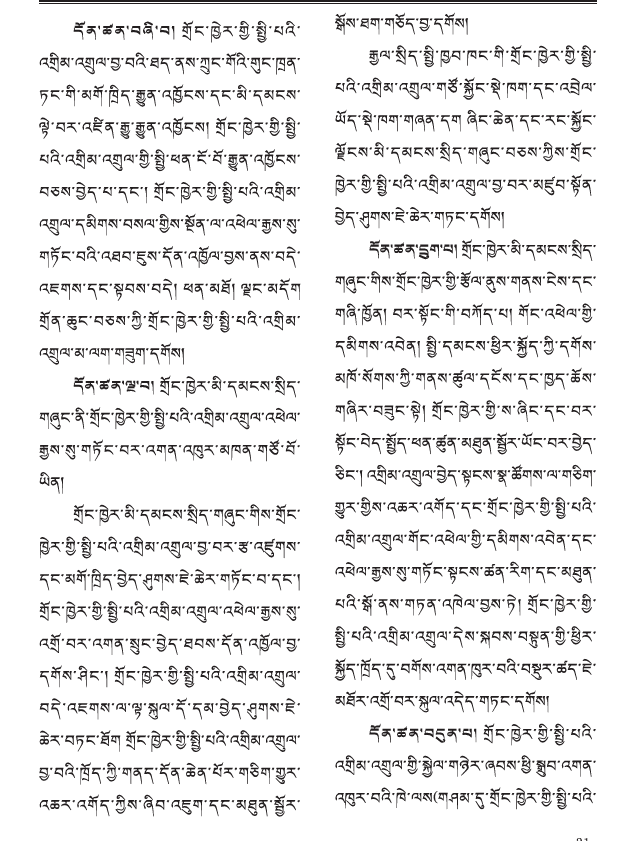 དོན་ཚན་བཞི་བ། གྲོང་ཁྱེར་གྱི་སྤྱི་པའི་
འགྲིམ་འགྲུལ་བྱ་བའི་ཐད་ནས་ཀྲུང་གོའི་གུང་ཁྲན་
ཏང་གི་མགོ་ཁྲིད་རྒྱུན་འཁྱོངས་དང་མི་དམངས་
ལྟེ་བར་འཛིན་རྒྱུ་རྒྱུན་འཁྱོངས། གྲོང་ཁྱེར་གྱི་སྤྱི་
པའི་འགྲིམ་འགྲུལ་གྱི་སྤྱི་ཕན་ངོ་བོ་རྒྱུན་འཁྱོངས་
བཅས་བྱེད་པ་དང་། གྲོང་ཁྱེར་གྱི་སྤྱི་པའི་འགྲིམ་
འགྲུལ་དམིགས་བསལ་གྱིས་སྔོན་ལ་འཕེལ་རྒྱས་སུ་
གཏོང་བའི་འཐབ་ཇུས་དོན་འཁྱོལ་བྱས་ནས་བདེ་
འཇགས་དང་སྟབས་བདེ། ཕན་མཐོ། ལྗང་མདོག
གྲོན་ཆུང་བཅས་ཀྱི་གྲོང་ཁྱེར་གྱི་སྤྱི་པའི་འགྲིམ་
འགྲུལ་མ་ལག་གཟུག་དགོས།
དོན་ཚན་ལྔ་བ། གྲོང་ཁྱེར་མི་དམངས་སྲིད་
གཞུང་ནི་གྲོང་ཁྱེར་གྱི་སྤྱི་པའི་འགྲིམ་འགྲུལ་འཕེལ་
རྒྱས་སུ་གཏོང་བར་འགན་འཁུར་མཁན་གཙོ་བོ་
ཡིན།
གྲོང་ཁྱེར་མི་དམངས་སྲིད་གཞུང་གིས་གྲོང་
ཁྱེར་གྱི་སྤྱི་པའི་འགྲིམ་འགྲུལ་བྱ་བར་རྩ་འཛུགས་
དང་མགོ་ཁྲིད་བྱེད་ཤུགས་ཇེ་ཆེར་གཏོང་བ་དང་།
གྲོང་ཁྱེར་གྱི་སྤྱི་པའི་འགྲིམ་འགྲུལ་འཕེལ་རྒྱས་སུ་
འགྲོ་བར་འགན་སྲུང་བྱེད་ཐབས་དོན་འཁྱོལ་བྱ་
དགོས་ཤིང་། གྲོང་ཁྱེར་གྱི་སྤྱི་པའི་འགྲིམ་འགྲུལ་
བདེ་འཇགས་ལ་ལྟ་སྐུལ་དོ་དམ་བྱེད་ཤུགས་ཇེ་
ཆེར་བཏང་ཐོག གྲོང་ཁྱེར་གྱི་སྤྱི་པའི་འགྲིམ་འགྲུལ་
བྱ་བའི་ཁྲོད་ཀྱི་གནད་དོན་ཆེན་པོར་གཅིག་གྱུར་
འཆར་འགོད་ཀྱིས་ཞིབ་འཇུག་དང་མཐུན་སྦྱོར་
སྒོས་ཐག་གཅོད་བྱ་དགོས།
རྒྱལ་སྲིད་སྤྱི་ཁྱབ་ཁང་གི་གྲོང་ཁྱེར་གྱི་སྤྱི་
པའི་འགྲིམ་འགྲུལ་གཙོ་སྐྱོང་སྡེ་ཁག་དང་འབྲེལ་
ཡོད་སྡེ་ཁག་གཞན་དག ཞིང་ཆེན་དང་རང་སྐྱོང་
ལྗོངས་མི་དམངས་སྲིད་གཞུང་བཅས་ཀྱིས་གྲོང་
ཁྱེར་གྱི་སྤྱི་པའི་འགྲིམ་འགྲུལ་བྱ་བར་མཛུབ་སྟོན་
བྱེད་ཤུགས་ཇེ་ཆེར་གཏང་དགོས།
དོན་ཚན་དྲུག་པ། གྲོང་ཁྱེར་མི་དམངས་སྲིད་
གཞུང་གིས་གྲོང་ཁྱེར་གྱི་རྩོལ་ནུས་གནས་ངེས་དང་
གཞི་ཁྱོན། བར་སྟོང་གི་བཀོད་པ། གོང་འཕེལ་གྱི་
དམིགས་འབེན། སྤྱི་དམངས་ཕྱིར་སྐྱོད་ཀྱི་དགོས་
མཁོ་སོགས་ཀྱི་གནས་ཚུལ་དངོས་དང་ཁྱད་ཆོས་
གཞིར་བཟུང་སྟེ། གྲོང་ཁྱེར་གྱི་ས་ཞིང་དང་བར་
སྟོང་བེད་སྤྱོད་ཕན་ཚུན་མཐུན་སྦྱོར་ཡོང་བར་བྱེད་
ཅིང་། འགྲིམ་འགྲུལ་བྱེད་སྟངས་སྣ་ཚོགས་ལ་གཅིག་
གྱུར་གྱིས་འཆར་འགོད་དང་གྲོང་ཁྱེར་གྱི་སྤྱི་པའི་
འགྲིམ་འགྲུལ་གོང་འཕེལ་གྱི་དམིགས་འབེན་དང་
འཕེལ་རྒྱས་སུ་གཏོང་སྟངས་ཚན་རིག་དང་མཐུན་
པའི་སྒོ་ནས་གཏན་འཁེལ་བྱས་ཏེ། གྲོང་ཁྱེར་གྱི་
སྤྱི་པའི་འགྲིམ་འགྲུལ་དེས་སྐབས་བསྟུན་གྱི་ཕྱིར་
སྐྱོད་ཁྲོད་དུ་བགོས་འགན་ཁུར་བའི་བསྡུར་ཚད་ཇེ་
མཐོར་འགྲོ་བར་སྐུལ་འདེད་གཏང་དགོས།
དོན་ཚན་བདུན་པ། གྲོང་ཁྱེར་གྱི་སྤྱི་པའི་
འགྲིམ་འགྲུལ་གྱི་སྐྱེལ་གཉེར་ཞབས་ཕྱི་སྒྲུབ་འགན་
འཁུར་བའི་ཁེ་ལས(གཤམ་དུ་གྲོང་ཁྱེར་གྱི་སྤྱི་པའི་